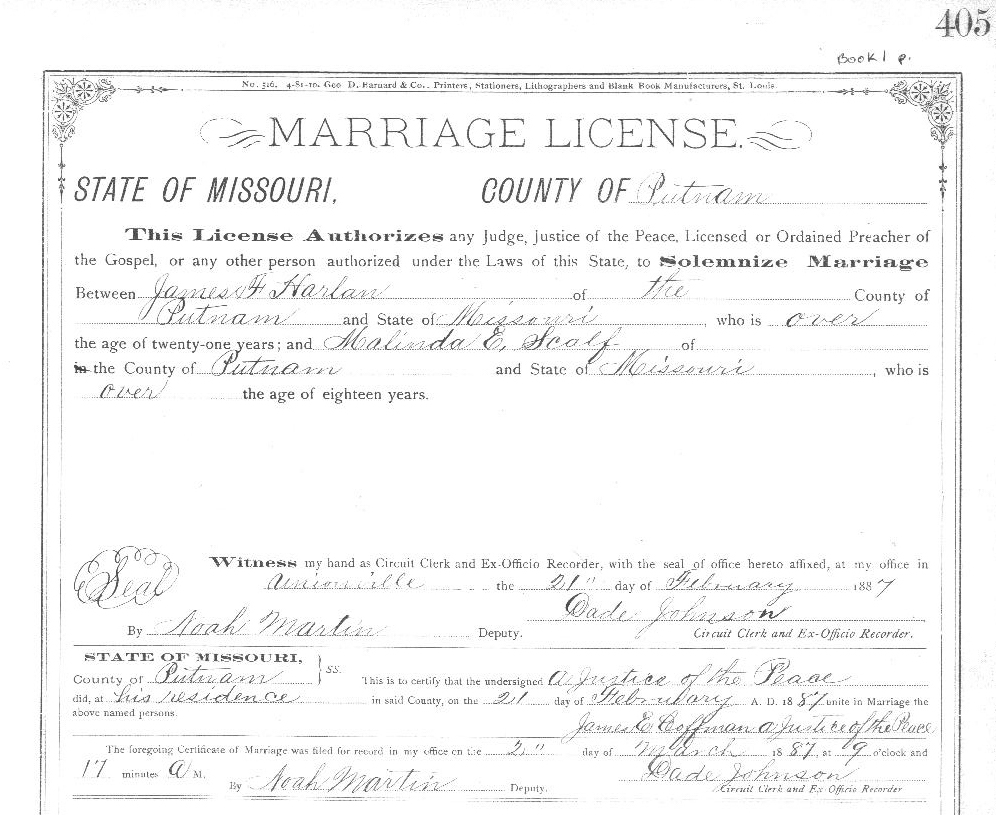 405
Book 1 p.
No. 516. 4-81-1D. Geo. D. Barnard & Co., Printers, Stationers, Lithographers and Blank Book Manufacturers, St. Louis.
MARRIAGE LICENSE.
STATE OF MISSOURI, COUNTY OF Putnam
This License Authorizes any Judge, Justice of the Peace, Licensed or Ordained Preacher of
the Gospel, or any other person authorized under the Laws of this State, to Solemnize Marriage
Between James F Harlan of the County of
Putnam and State of Missouri, who is over
the age of twenty-one years; and Malinda E. Scalf of
in the County of Putnam and State of Missouri, who is
over the age of eighteen years.
Seal Witness my hand as Circuit Clerk and Ex-Officio Recorder, with the seal of office hereto affixed, at my office in
Unionville the 21" day of February 1887
Dade Johnson
By Noah Martin Deputy. Circuit Clerk and Ex-Officio Recorder.
STATE OF MISSOURI,
County of Putnam ss. This is to certify that the undersigned a Justice of the Peace
did, at his residence in said County, on the 21 day of February A. D. 1887 unite in Marriage the
above named persons.
James E Coffman a Justice of the Peace
The foregoing Certificate of Marriage was filed for record in my office on the 2" day of March 1887, at 9 o'clock and
17 minutes A M. Dade Johnson
By Noah Martin Deputy. Circuit Clerk and Ex-Officio Recorder